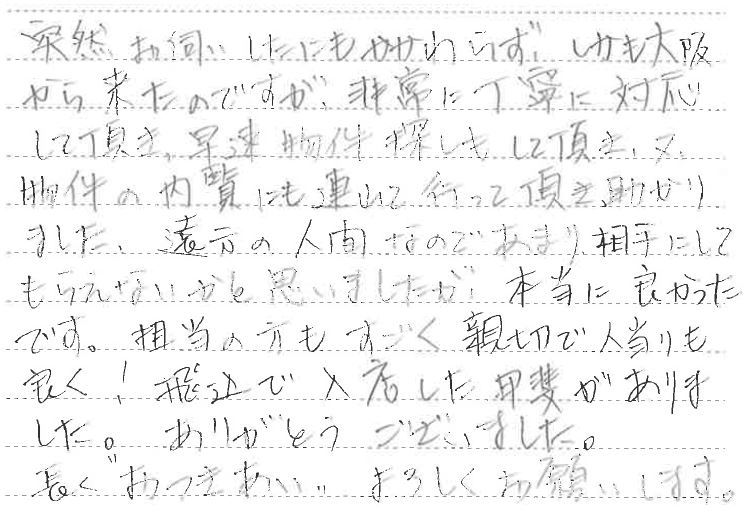 突然、お伺いしたにもかかわらず、しかも大阪
から来たのですが、非常に丁寧に対応
して頂き、早速物件探しもして頂き、又、
物件の内覧にも連れて行って頂き助かり
ました。遠方の人間なのであまり相手にして
もらえないかと思いましたが、本当に良かった
です。担当の方もすごく親切で人当りも
良く！飛込で入店した甲斐がありま
した。ありがとうございました。
長く"おつきあい"よろしくお願いします。